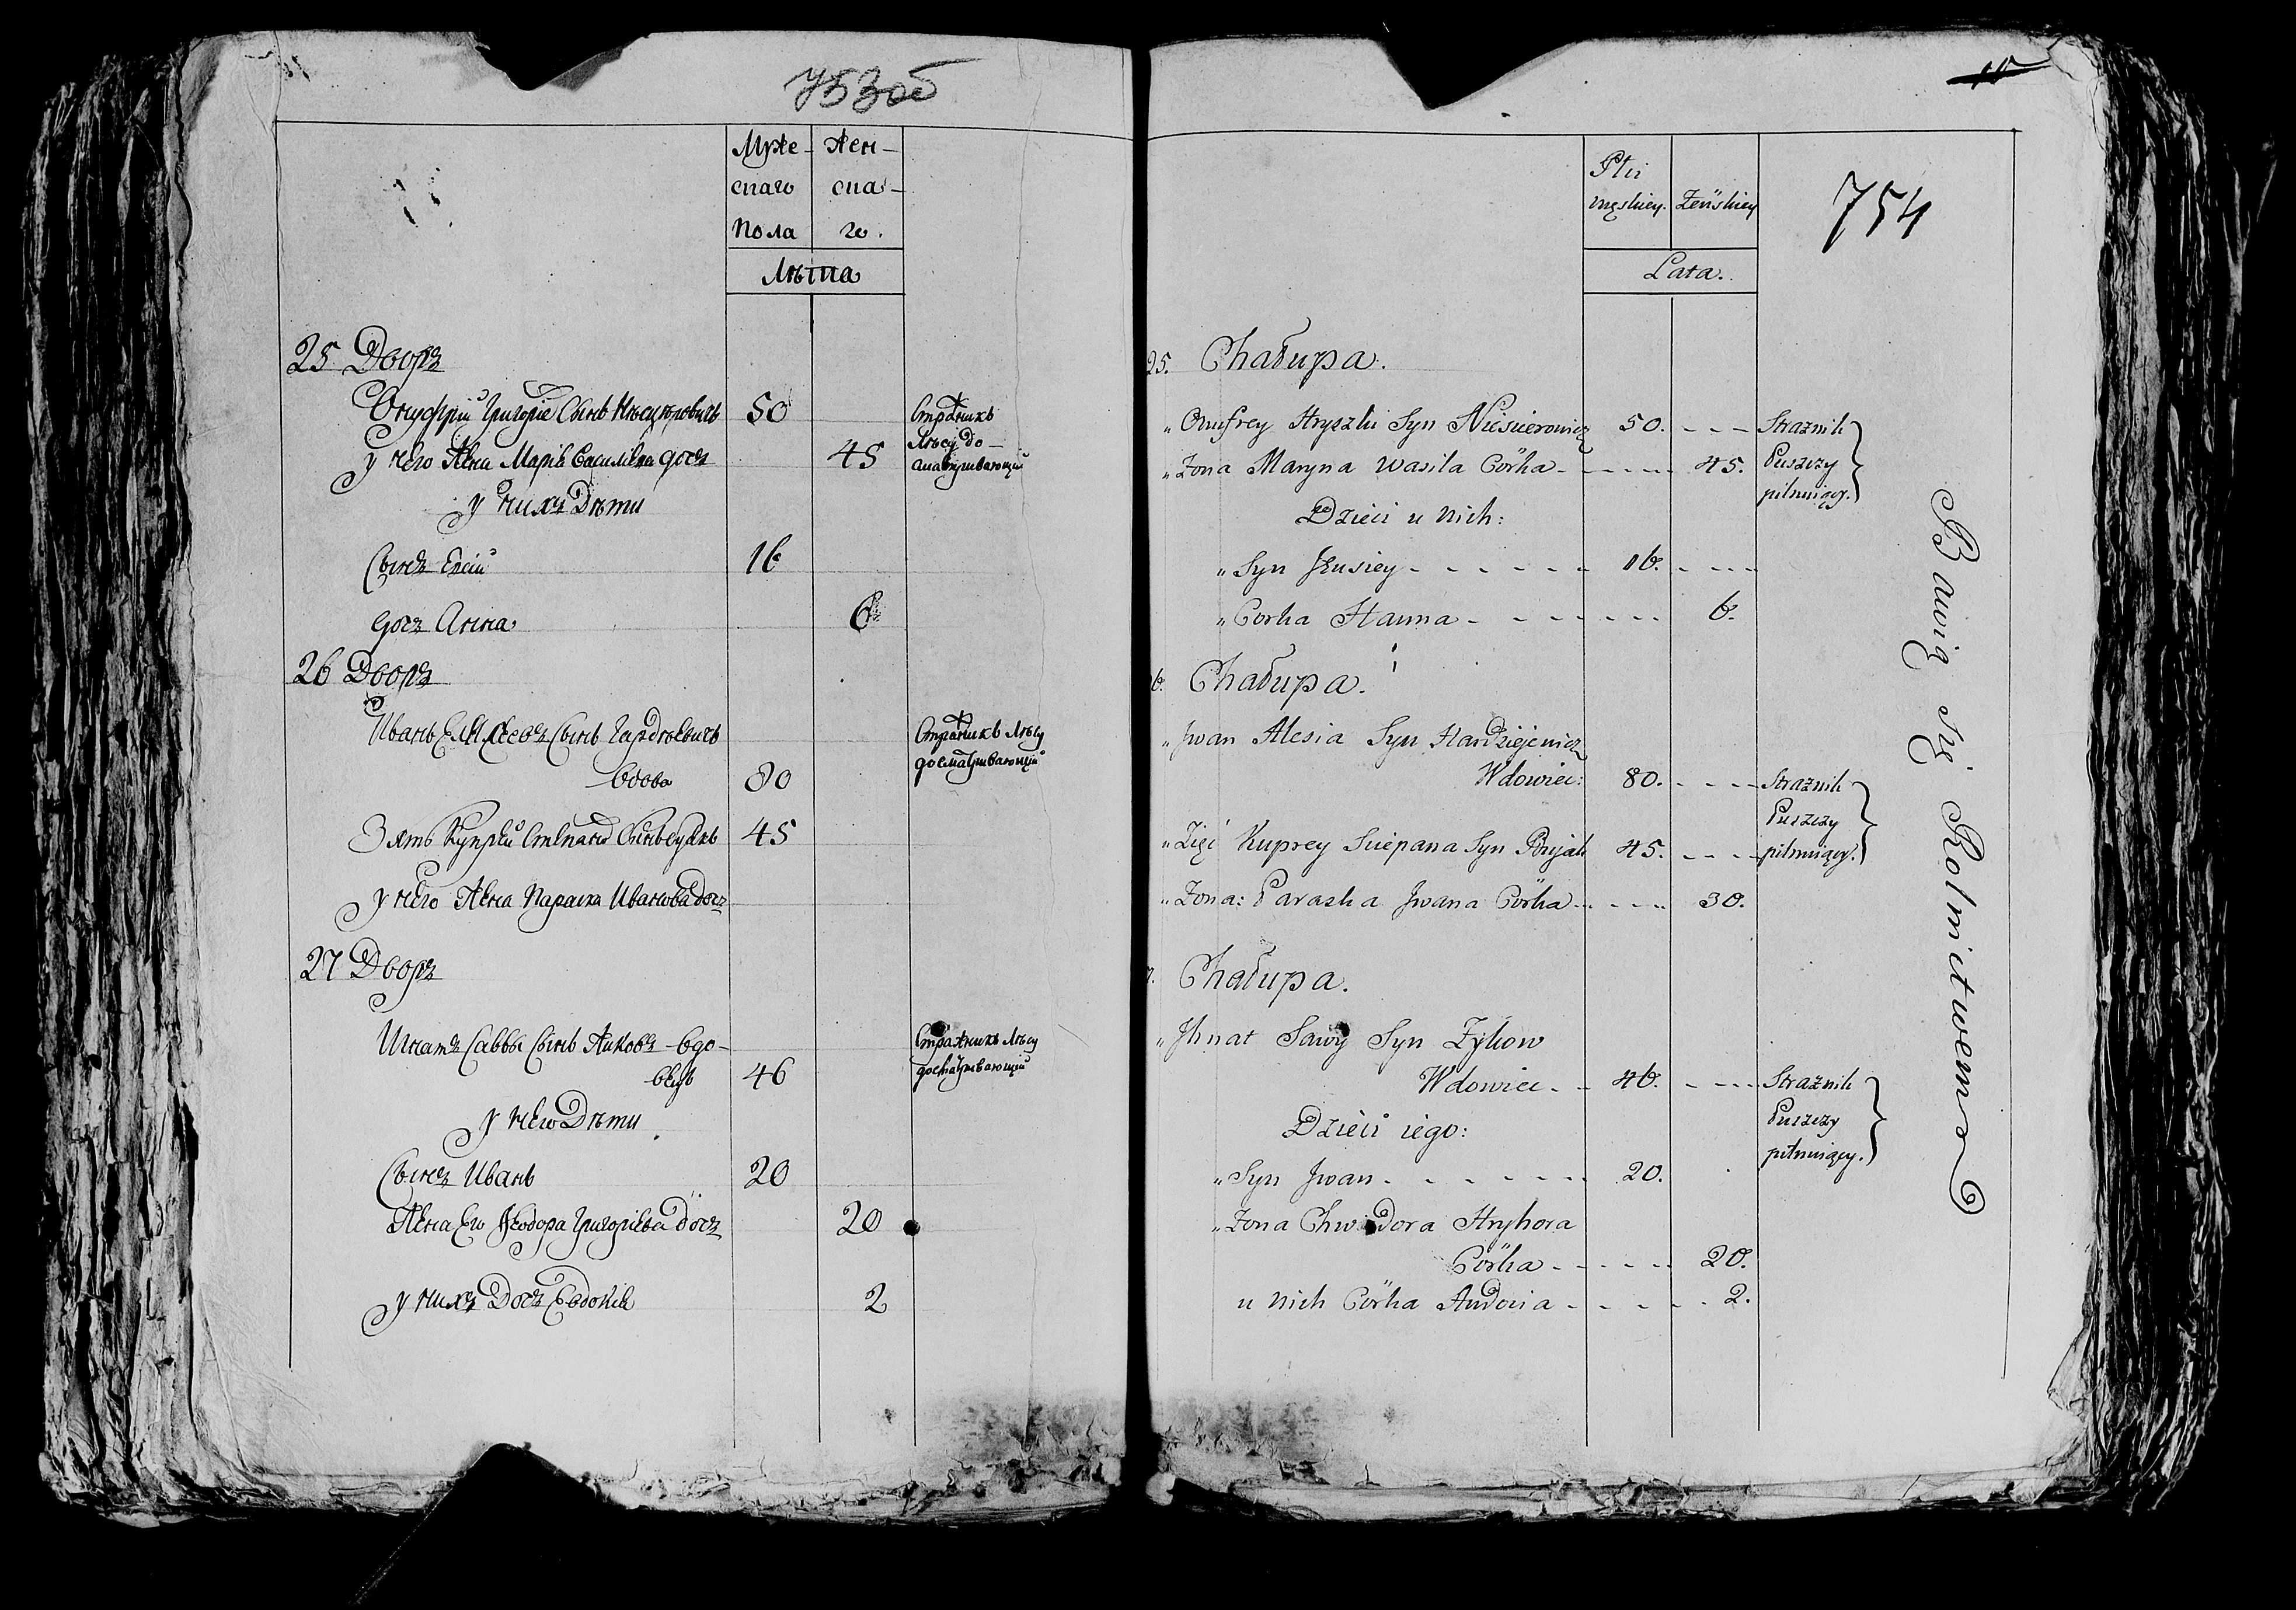 753об
Муже- Жен-
скаго ска-
Пола го.
Лѣта
25 Дворъ
Онуфрій Григорiе Сынъ Нѣсцѣровичъ 50 Стражникъ
Лѣсу до-
сматривающій
у него Жена Марiя Василiева дочъ 45
у нихъ Дѣти
Сынъ Евсiй 16
дочъ Анна 6
26 Дворъ
Иванъ Елисеевъ Сынъ Гардѣевичъ Стражникъ Лѣсу
досматривающій
вдовъ 80
Зять Купрей Степана Сынъ 45
у него Жена Параска Иванова дочъ
27 Дворъ
Игнатъ Саввы Сынъ Жиковъ вдо- Стражникъ Лѣсу
досматривающій
вецъ 46
у него Дѣти
Сынъ Иванъ 20
Жена Его Ѳеодора Григорiева дочъ 20
у нихъ Дочъ Евдокiя 2
Płci
męskiey. Żeńskiey
Lata.
754
25. Chałupa.
„ Onufrey Hryszki Syn Niesierowicz 50. - - - Strażnik
„ Żona Maryna Wasila Córka - - - - - 45. Puszczy
pilnuiący.
Dzieci u nich:
„ Syn Jeusiey - - - - - - 16. - - - -
„ Corka Hanna - - - - - - - 6.
6. Chałupa.
„ Jwan Alesia Syn Hardziejewicz
Wdowiec: 80. - - - - Strażnik
Puszczy
„ Zięć Kuprey Sciepana Syn 45. - - - - pilnuiący.
„ Żona: Paraska Jwana Córka - - - - - 30.
7. Chałupa.
„ Jhnat Sawy Syn Żykow
Wdowiec - - 46. - - - - Strażnik
Puszczy
pilnuiący.
Dzieci iego:
„ Syn Jwan - - - - - - 20.
„ Żona Chwiedora Hryhora
Córka - - - - - 20.
u nich Córka Audocia - - - - - 2.
Bawią się Rolnictwem